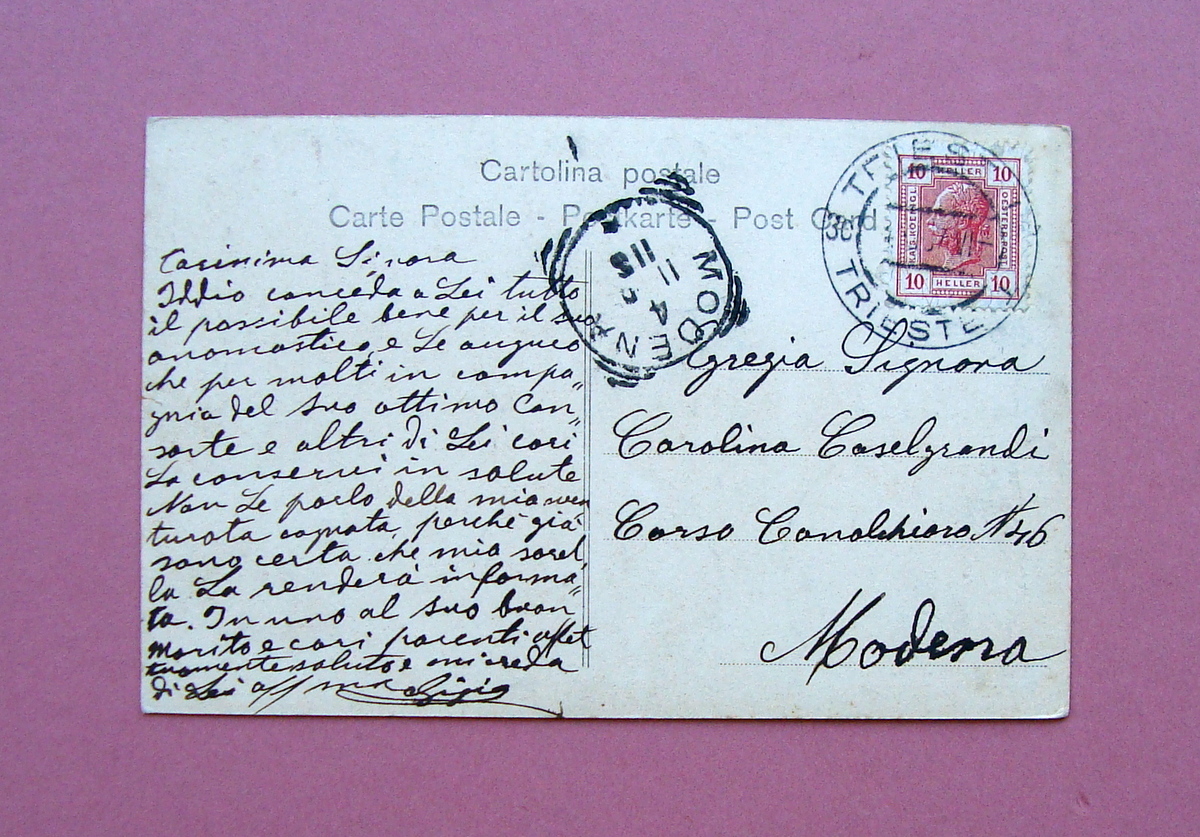 Cartolina postale
Carte Postale - Postkarte - Post Card
Carissima Signora
Iddio conceda a Lei tutto
il possibile bene per il suo
onomastico, e Le auguro
che per molti in compa„
gnia del suo ottimo Con„
sorte e altri di Lei cari
La conservi in salute
Non Le parlo della mia sven
turata cognata, perchè già
sono certa che mia sorel
la La renderà informa„
ta. In uno al suo buon
marito e cari parenti affet
tuamente saluto e mi creda
di Lei aff ma Gigia
MODENA
11 5
11 4 5
TRIEST
30
TRIESTE
10 HELLER 10
KAIS.KOENIGL.
OESTERR.POST
10 HELLER 10
Egregia Signora
Carolina Caselgrandi
Corso Canalchiaro N 46
Modena